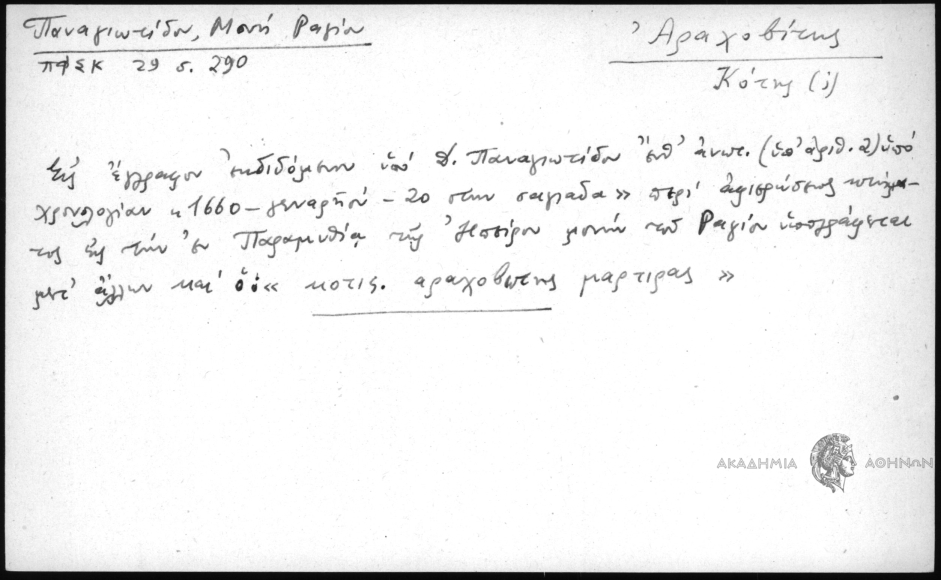 Παναγιωτίδου, Μονή Ραγίου
ΠΦΣΚ 29 σ. 290
Ἀραχοβίτης
Κότης (ὁ)
Εἰς ἔγγραφον ἐκδιδόμενον ὑπό Δ. Παναγιωτίδου ἐνθ' ἀνωτ. (ὑπ' ἀριθ. 2) ὑπό
χρονολογίαν « 1660 - γεναρηου - 20 στην σαγιαδα » περί ἀφιερώσεως κτήμα-
τος εἰς τήν ἐν Παραμυθίᾳ τῆς Ἠπείρου μονήν τοῦ Ραγίου ὑπογράφεται
μετ' ἄλλων καί ὁ « κοτις. αραχοβιτης μαρτιρας »
ΑΚΑΔΗΜΙΑ ΑΘΗΝΩΝ